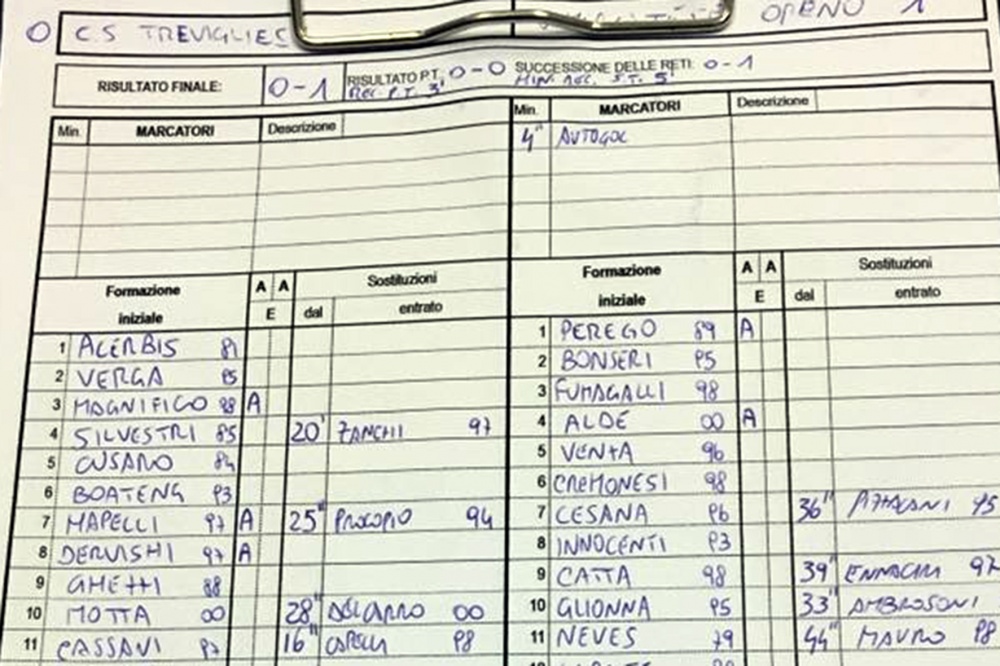 O CS TREVIGLIES OPENO 1
RISULTATO FINALE: 0-1 RISULTATO P.T. 0-0 SUCCESSIONE DELLE RETI: 0-1
REC. P.T. 3' MIN. REC. S.T. 5'
Min. MARCATORI Descrizione Min. MARCATORI Descrizione
4" AUTOGOL
Formazione iniziale A A E Sostituzioni dal entrato Formazione iniziale A A E Sostituzioni dal entrato
1 ACERBIS 81 1 PEREGO 89 A
2 VERGA 95 2 BONSERI 95
3 MAGNIFICO 98 A 3 FUMAGALLI 98
4 SILVESTRI 85 20' ZANCHI 97 4 ALDE 00 A
5 CUSARO 84 5 VENTA 96
6 BOATENG 93 6 CREMONESI 98
7 MAPELLI 97 A 25" PROCOPIO 94 7 CESANA 96 36" 95
8 DERVISHI 97 A 8 INNOCENTI 93
9 GHETTI 88 9 CATTA 98 39" 97
10 MOTTA 00 28" 00 10 GLIONNA 95 33" AMBROSONI
11 CASSANI 97 16" CAPELLI 98 11 NEVES 79 44" MAURO 98